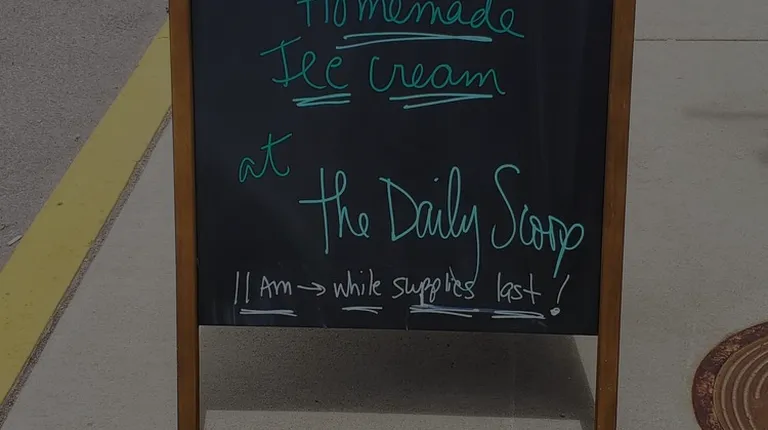 Homemade
Ice cream
at
The Daily Scoop
11 Am → while supplies last!